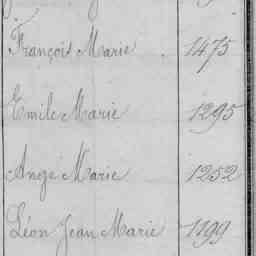 François Marie 1475
Emile Marie 1295
Ange Marie 1252
Léon Jean Marie 1199